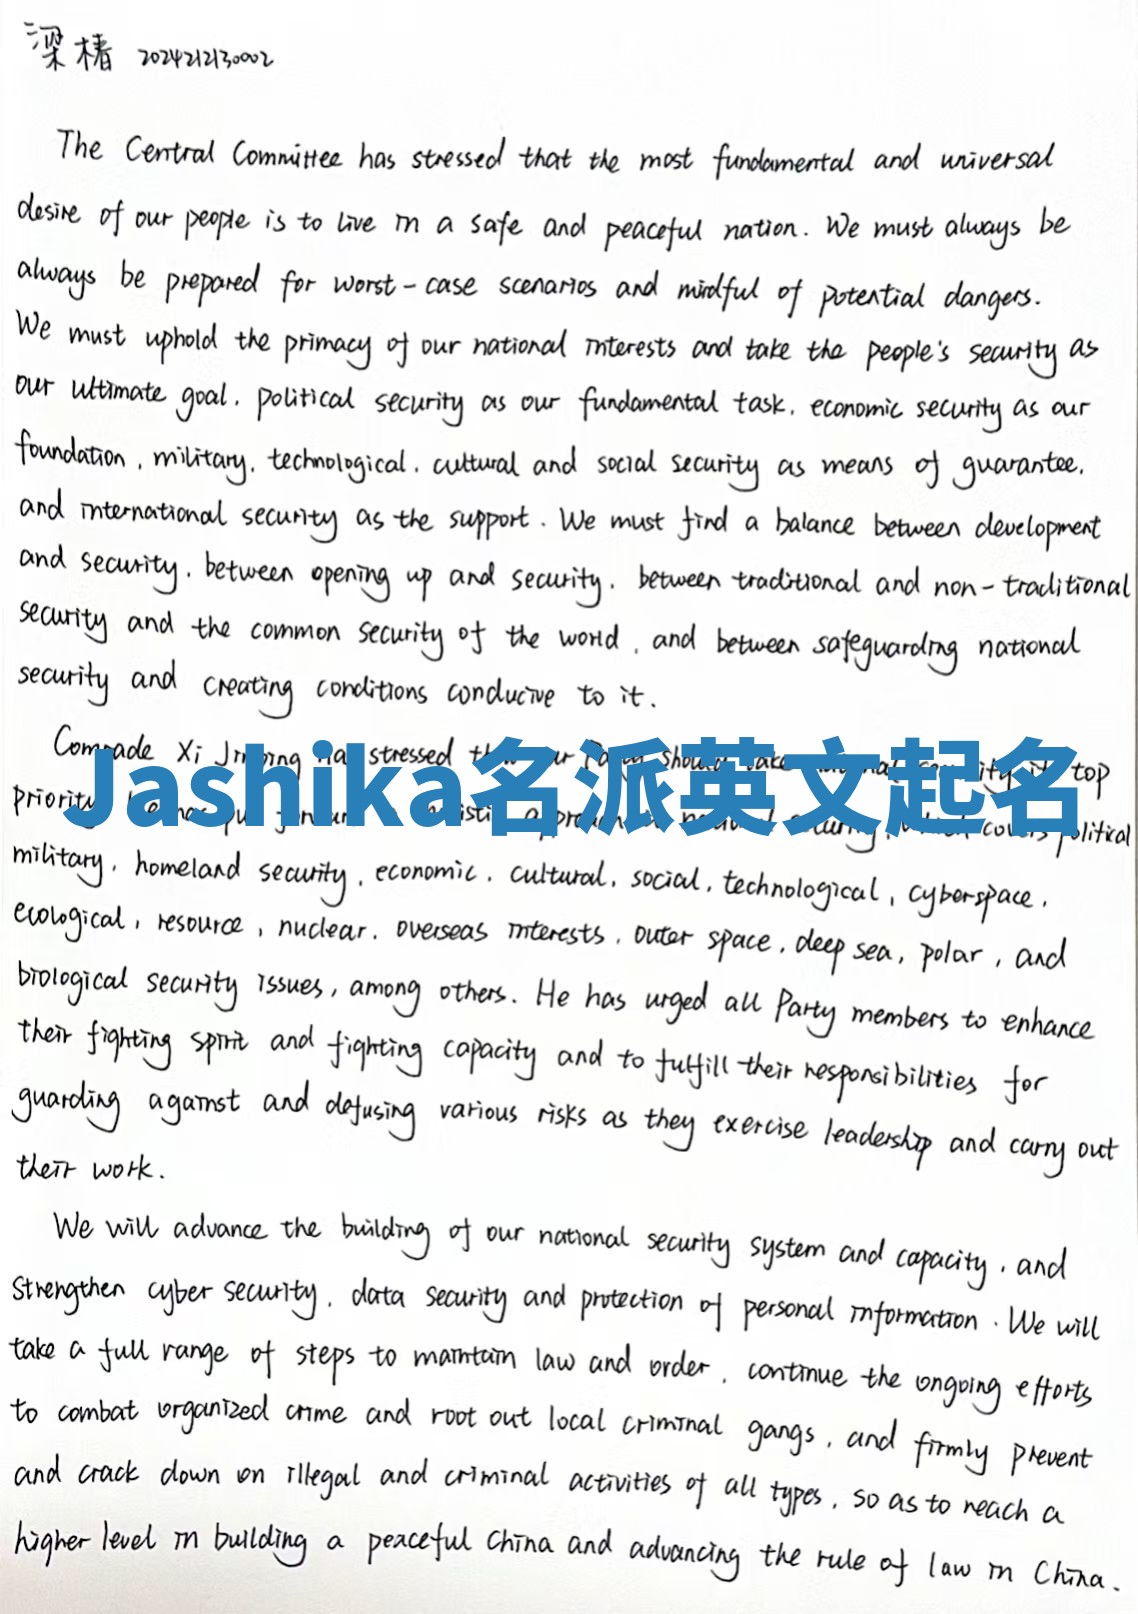 梁椿 2024212130002
The Central Committee has stressed that the most fundamental and universal
desire of our people is to live in a safe and peaceful nation. We must always be
always be prepared for worst-case scenarios and mindful of potential dangers.
We must uphold the primacy of our national interests and take the people's security as
our ultimate goal, political security as our fundamental task, economic security as our
foundation, military, technological, cultural and social security as means of guarantee,
and international security as the support. We must find a balance between development
and security, between opening up and security, between traditional and non-traditional
security and the common security of the world, and between safeguarding national
security and creating conditions conducive to it.
Comrade Xi Jinping has stressed
top
Jashika名派英文起名
priority
political
military, homeland security, economic, cultural, social, technological, cyberspace,
ecological, resource, nuclear, overseas interests, outer space, deep sea, polar, and
biological security issues, among others. He has urged all Party members to enhance
their fighting spirit and fighting capacity and to fulfill their responsibilities for
guarding against and defusing various risks as they exercise leadership and carry out
their work.
We will advance the building of our national security system and capacity, and
strengthen cyber security, data security and protection of personal information. We will
take a full range of steps to maintain law and order, continue the ongoing efforts
to combat organized crime and root out local criminal gangs, and firmly prevent
and crack down on illegal and criminal activities of all types, so as to reach a
higher level in building a peaceful China and advancing the rule of law in China.